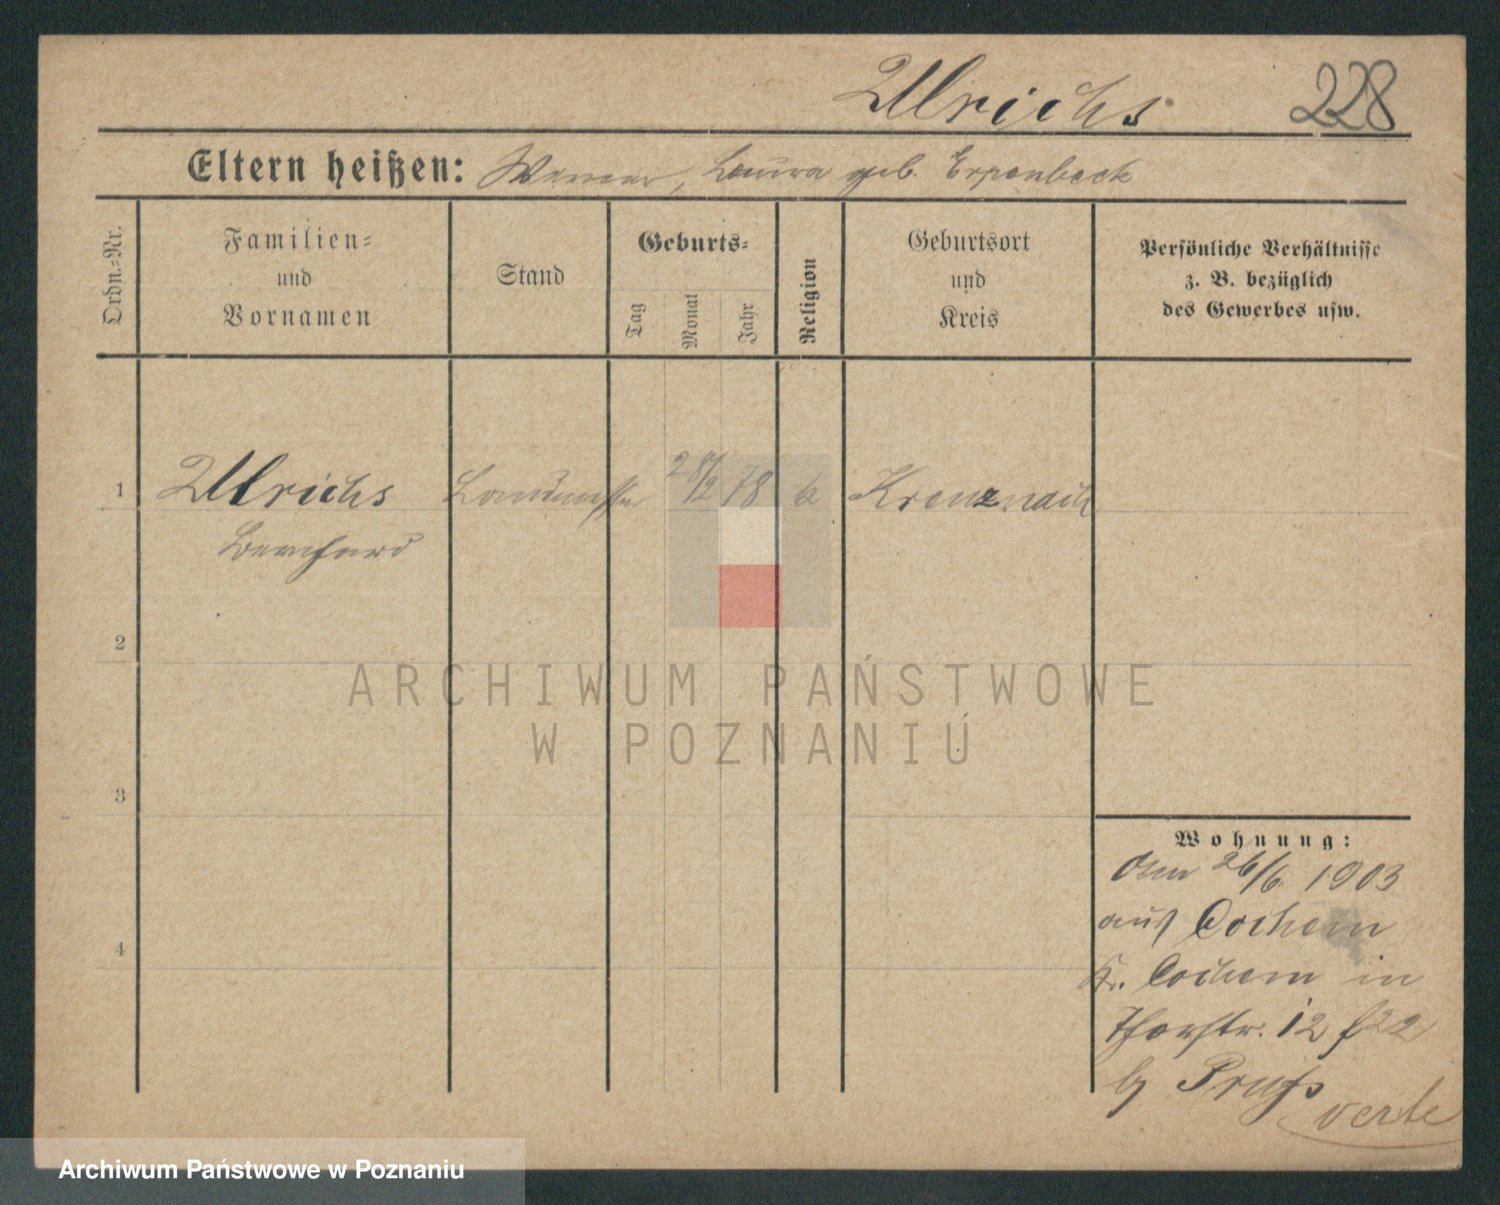 Ulrichs 228
Eltern heißen: Werner, Laura geb. Erpenbeck
Ordn.-Nr.
Familien-
und
Vornamen
Stand
Geburts-
Tag
Monat
Jahr
Religion
Geburtsort
und
Kreis
Persönliche Verhältnisse
z. B. bezüglich
des Gewerbes usw.
1 Ulrichs Landmesser 28/2 78 Kreuznach
Bernhard
2
3
4
Wohnung:
Am 26/6. 1903
aus Cochem
Kr. Cochem in
Thorstr. 12
verte
ARCHIWUM PAŃSTWOWE
W POZNANIU
Archiwum Państwowe w Poznaniu